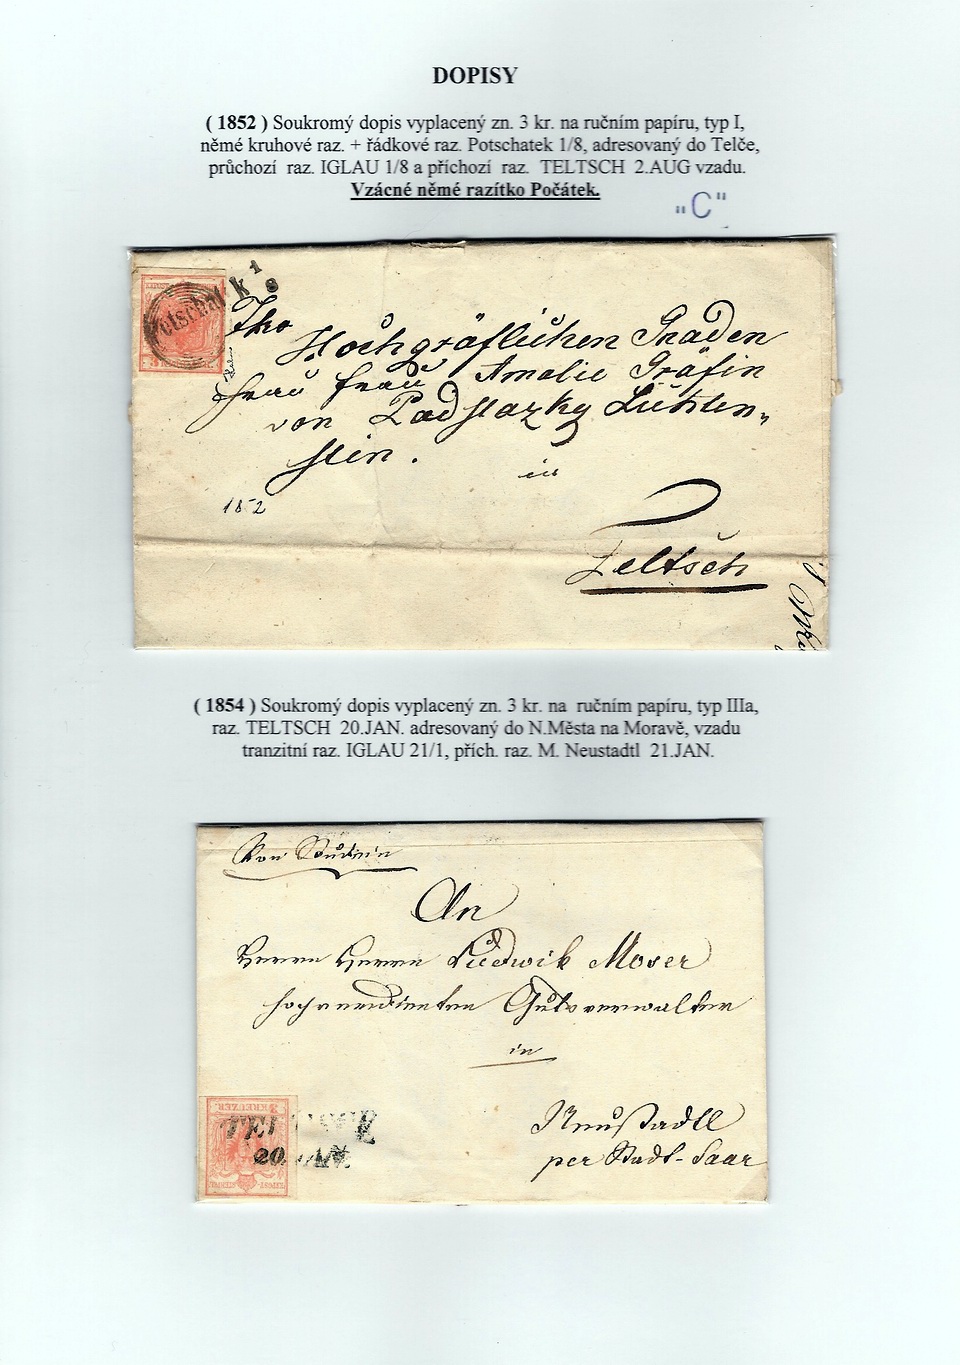 DOPISY
( 1852 ) Soukromý dopis vyplacený zn. 3 kr. na ručním papíru, typ I,
němé kruhové raz. + řádkové raz. Potschatek 1/8, adresovaný do Telče,
průchozí raz. IGLAU 1/8 a příchozí raz. TELTSCH 2.AUG vzadu.
Vzácné němé razítko Počátek.
„C"
Potschatek 1/8
Ihro
Hochgräflichen Gnaden
Frau Frau Amalie Gräfin
von Podstazky Lichten„
stein.
in
1852
Teltsch
( 1854 ) Soukromý dopis vyplacený zn. 3 kr. na ručním papíru, typ IIIa,
raz. TELTSCH 20.JAN. adresovaný do N.Města na Moravě, vzadu
tranzitní raz. IGLAU 21/1, přích. raz. M. Neustadtl 21.JAN.
Von Studein
An
Herrn Herrn Ludwik Moser
hochverdienten Gutsverwalter
in
3 KREUZER
TELTSCH
20. JAN.
Neustadtl
per Stadt-Saar